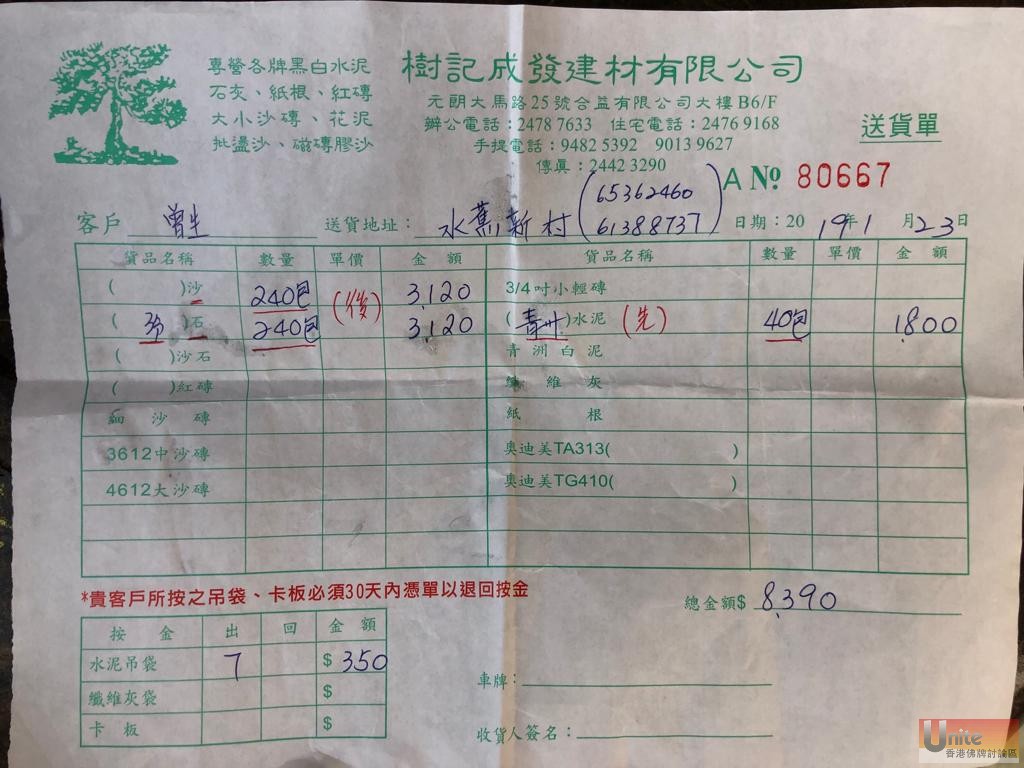 專營各牌黑白水泥
石灰、紙根、紅磚
大小沙磚、花泥
批盪沙、磁磚膠沙
樹記成發建材有限公司
元朗大馬路25號合益有限公司大樓B6/F
辦公電話：2478 7633 住宅電話：2476 9168
手提電話：9482 5392 9013 9627
傳真：2442 3290
送貨單
A № 80667
客戶 曾生 送貨地址： 水蕉新村 (65362460 61388737) 日期：20 19年1月23日
貨品名稱 數量 單價 金額 貨品名稱 數量 單價 金額
( )沙 240包 (後) 3,120 3/4吋小輕磚
( )石 240包 3,120 (青州)水泥 (先) 40包 1,800
( )沙石 青洲白泥
( )紅磚 纖維灰
細沙磚 紙根
3612中沙磚 奧迪美TA313( )
4612大沙磚 奧迪美TG410( )
*貴客戶所按之吊袋、卡板必須30天內憑單以退回按金
總金額$ 8,390
按金 出 回 金額
水泥吊袋 7 $ 350
纖維灰袋 $
卡板 $
車牌：
收貨人簽名：
Unite
香港佛牌討論區